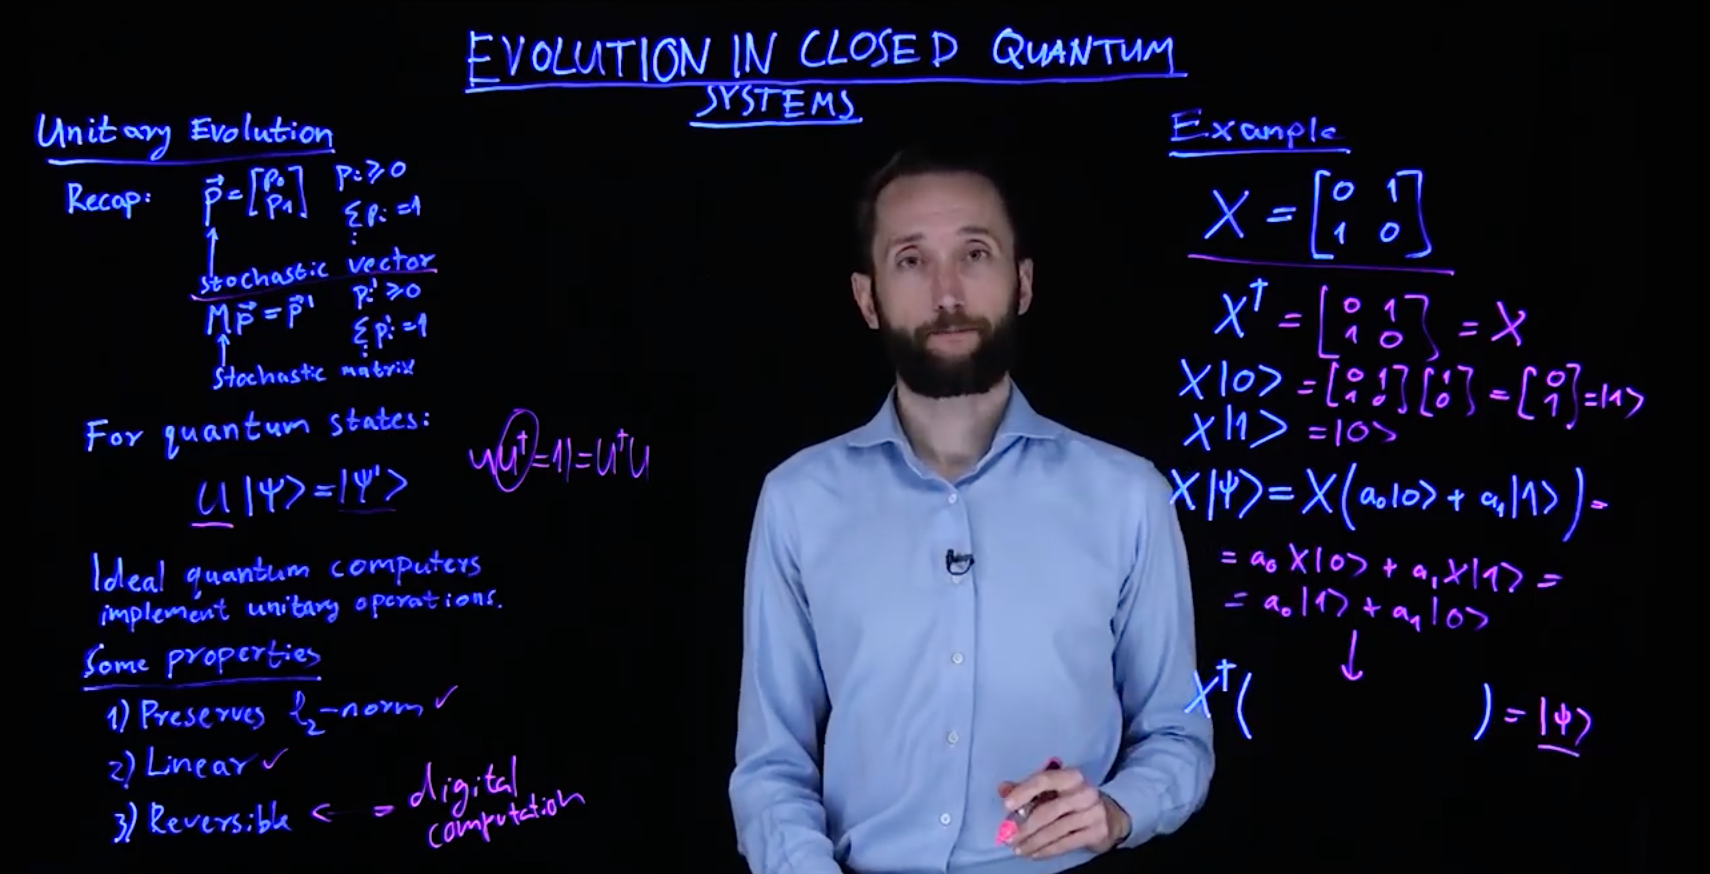 EVOLUTION IN CLOSED QUANTUM
SYSTEMS
Unitary Evolution
Recap: p⃗ = [p₀ p₁] pᵢ ≥ 0
Σpᵢ = 1
stochastic vector
Mp⃗ = p⃗' pᵢ' ≥ 0
Σpᵢ' = 1
stochastic matrix
For quantum states:
U|Ψ⟩ = |Ψ'⟩
UU† = 1 = U†U
Ideal quantum computers
implement unitary operations.
Some properties
1) Preserves ℓ₂-norm ✓
2) Linear ✓
3) Reversible ← = digital
computation
Example
X = [0 1; 1 0]
X† = [0 1; 1 0] = X
X|0⟩ = [0 1; 1 0][1; 0] = [0; 1] = |1⟩
X|1⟩ = |0⟩
X|Ψ⟩ = X(a₀|0⟩ + a₁|1⟩) =
= a₀X|0⟩ + a₁X|1⟩ =
= a₀|1⟩ + a₁|0⟩
↓
X†( ) = |ψ⟩